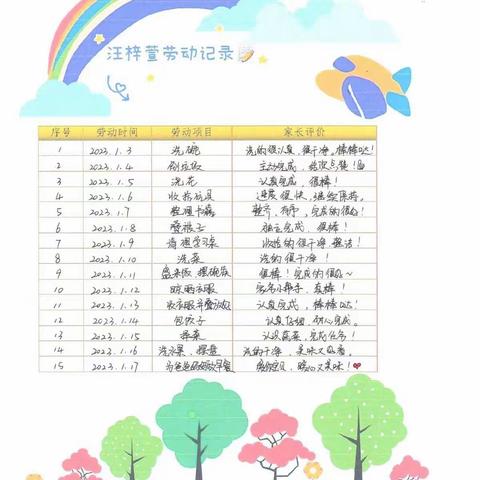 汪梓萱劳动记录
序号 劳动时间 劳动项目 家长评价
1 2023.1.3 洗碗 洗的很认真，很干净。棒棒哒！
2 2023.1.4 刷应 主动完成，给你点赞！
3 2023.1.5 浇花 认真完成，很棒！
4 2023.1.6 收拾玩具 速度很快，继续保持。
5 2023.1.7 整理书 整齐，有序，完成的很
6 2023.1.8 叠被子 独立完成，很棒！
7 2023.1.9 清理学习桌 收拾的很干净，整洁！
8 2023.1.10 洗菜 洗的很干净！
9 2023.1.11 很棒！完成的很
10 2023.1.12 晾晒衣服 真棒！
11 2023.1.13 收衣服并叠 认真完成，棒棒哒！
12 2023.1.14 包饺子 认真仔细，耐心完成。
13 2023.1.15 择菜 认识蔬菜，完成任务！
14 2023.1.16 洗水果、摆盘 洗的干净，美味又好看。
15 2023.1.17 早餐 暖心又美味！